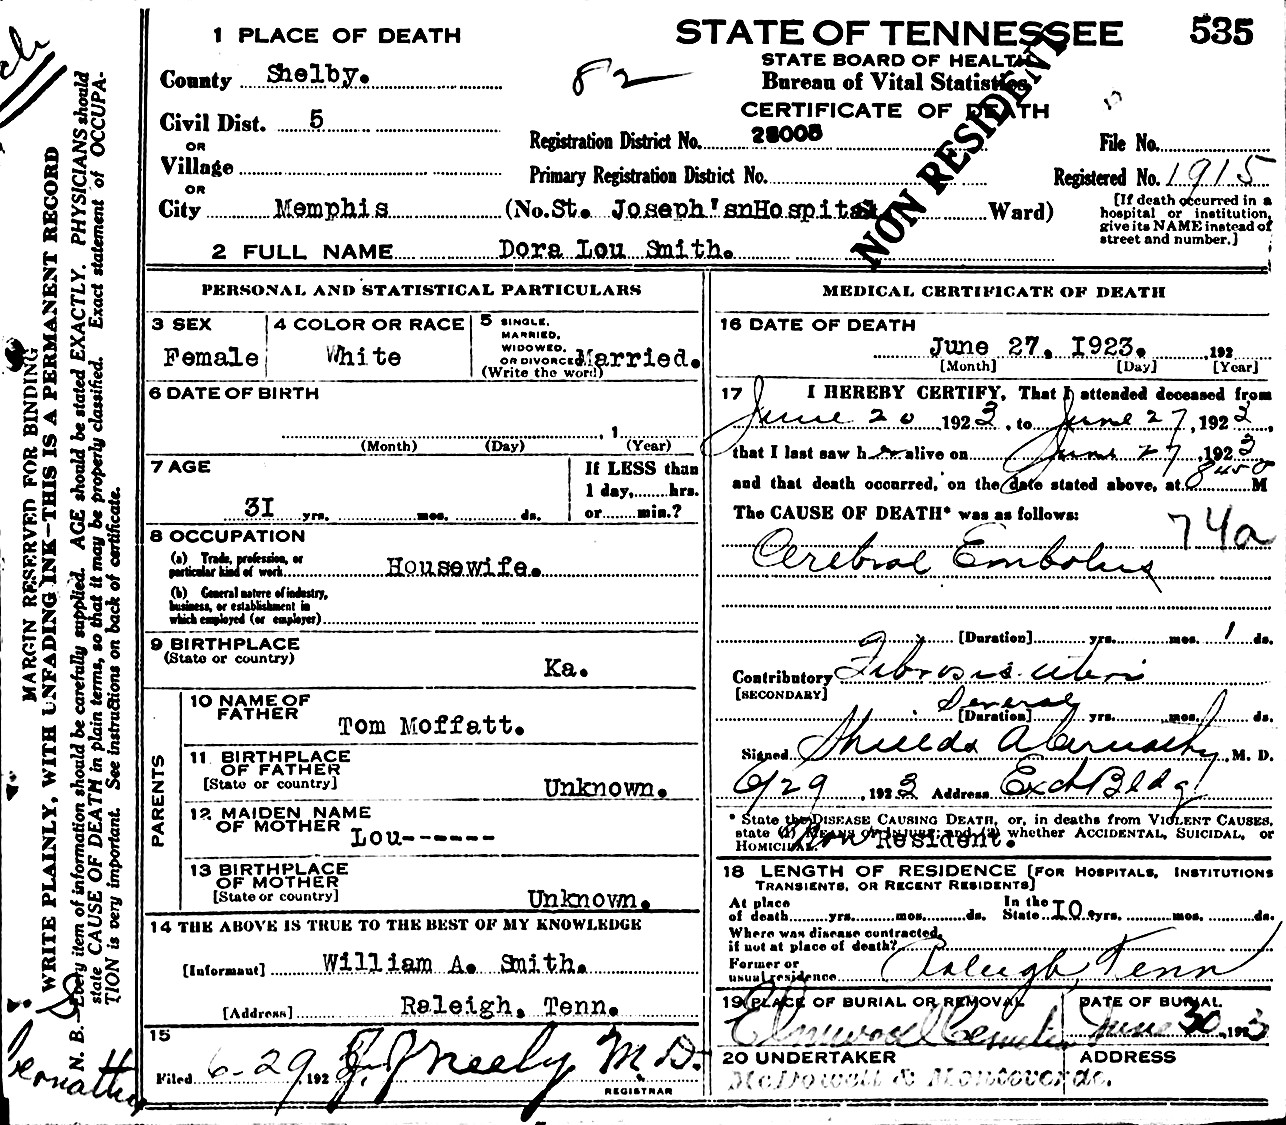 1 PLACE OF DEATH
County Shelby.
Civil Dist. 5
OR
Village
OR
City Memphis (No. St. Joseph'snHospital Ward)
2 FULL NAME Dora Lou Smith.
82
STATE OF TENNESSEE
STATE BOARD OF HEALTH
Bureau of Vital Statistics
CERTIFICATE OF DEATH
535
NON RESIDENT
Registration District No. 28005
Primary Registration District No.
File No.
Registered No. 1915
[If death occurred in a
hospital or institution,
give its NAME instead of
street and number.]
MARGIN RESERVED FOR BINDING
WRITE PLAINLY, WITH UNFADING INK—THIS IS A PERMANENT RECORD
N. B.—Every item of information should be carefully supplied. AGE should be stated EXACTLY. PHYSICIANS should
state CAUSE OF DEATH in plain terms, so that it may be properly classified. Exact statement of OCCUPA-
TION is very important. See instructions on back of certificate.
PERSONAL AND STATISTICAL PARTICULARS
3 SEX
Female
4 COLOR OR RACE
White
5 SINGLE,
MARRIED,
WIDOWED,
OR DIVORCED Married.
(Write the word)
6 DATE OF BIRTH
, 1
(Month) (Day) (Year)
7 AGE
3I yrs. mos. ds.
If LESS than
1 day, hrs.
or min.?
8 OCCUPATION
(a) Trade, profession, or
particular kind of work Housewife.
(b) General nature of industry,
business, or establishment in
which employed (or employer)
9 BIRTHPLACE
(State or country)
Ka.
PARENTS
10 NAME OF
FATHER
Tom Moffatt.
11 BIRTHPLACE
OF FATHER
[State or country]
Unknown.
12 MAIDEN NAME
OF MOTHER
Lou------
13 BIRTHPLACE
OF MOTHER
[State or country]
Unknown.
14 THE ABOVE IS TRUE TO THE BEST OF MY KNOWLEDGE
[Informant] William A. Smith.
[Address] Raleigh, Tenn.
15
Filed 6-29, 192 J. J. Neely M D.
REGISTRAR
MEDICAL CERTIFICATE OF DEATH
16 DATE OF DEATH
June 27. I923. , 192
[Month] [Day] [Year]
17 I HEREBY CERTIFY, That I attended deceased from
June 20, 1923, to June 27, 1923,
that I last saw her alive on June 27, 1923
and that death occurred, on the date stated above, at 8450 M
The CAUSE OF DEATH* was as follows:
74a
Cerebral Embolus
[Duration] yrs. mos. 1 ds.
Contributory Fibrosis uteri
[SECONDARY]
Several
[Duration] yrs. mos. ds.
Signed Shields Abernathy, M. D.
6/29, 1923 Address Exch Bldg
* State the DISEASE CAUSING DEATH, or, in deaths from VIOLENT CAUSES,
state (1) MEANS OF INJURY; and (2) whether ACCIDENTAL, SUICIDAL, or
HOMICIDAL.
Non Resident.
18 LENGTH OF RESIDENCE [FOR HOSPITALS, INSTITUTIONS
TRANSIENTS, OR RECENT RESIDENTS]
At place
of death yrs. mos. ds.
In the
State I0 yrs. mos. ds.
Where was disease contracted,
if not at place of death?
Former or
usual residence Raleigh, Tenn
19 PLACE OF BURIAL OR REMOVAL
Elmwood Cemetery
DATE OF BURIAL
June 30, 1923
20 UNDERTAKER
ADDRESS
McDowell & Monteverde.